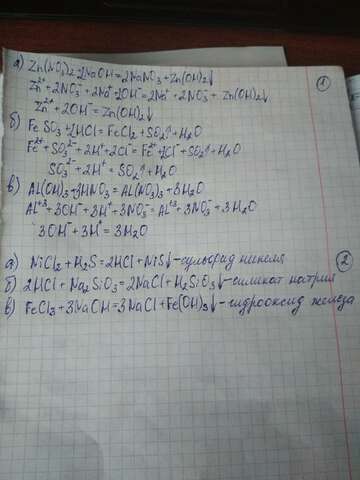 1
а) Zn(NO₃)₂+2NaOH=2NaNO₃+Zn(OH)₂↓
Zn²⁺+2NO₃⁻+2Na⁺+2OH⁻=2Na⁺+2NO₃⁻+Zn(OH)₂↓
Zn²⁺+2OH⁻=Zn(OH)₂↓
б) FeSO₃+2HCl=FeCl₂+SO₂↑+H₂O
Fe²⁺+SO₃²⁻+2H⁺+2Cl⁻=Fe²⁺+2Cl⁻+SO₂↑+H₂O
SO₃²⁻+2H⁺=SO₂↑+H₂O
в) Al(OH)₃+3HNO₃=Al(NO₃)₃+3H₂O
Al⁺³+3OH⁻+3H⁺+3NO₃⁻=Al⁺³+3NO₃⁻+3H₂O
3OH⁻+3H⁺=3H₂O
2
а) NiCl₂+H₂S=2HCl+NiS↓-сульфид никеля
б) 2HCl+Na₂SiO₃=2NaCl+H₂SiO₃↓-силикат натрия
в) FeCl₃+3NaOH=3NaCl+Fe(OH)₃↓-гидрооксид железа